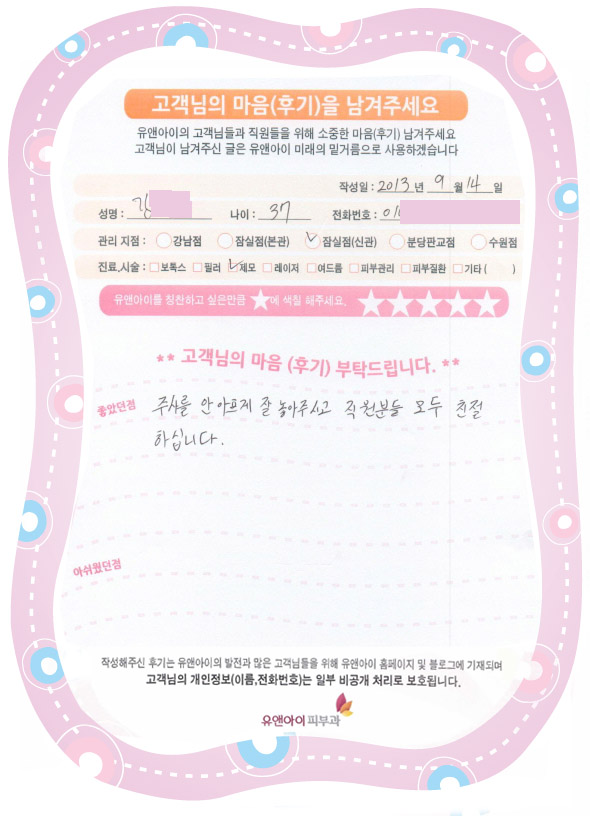 고객님의 마음(후기)을 남겨주세요
유앤아이의 고객님들과 직원들을 위해 소중한 마음(후기) 남겨주세요
고객님이 남겨주신 글은 유앤아이 미래의 밑거름으로 사용하겠습니다
작성일 : 2013 년 9 월 14 일
성명 : 강 나이 : 37 전화번호 : 010
관리 지점 : 강남점 잠실점(본관) 잠실점(신관) 분당판교점 수원점
진료,시술 : 보톡스 필러 제모 레이저 여드름 피부관리 피부질환 기타 ( )
유앤아이를 칭찬하고 싶은만큼 ★에 색칠 해주세요. ★★★★★
** 고객님의 마음 (후기) 부탁드립니다. **
좋았던점 주사를 안아프게 잘 놓아주시고 직원분들 모두 친절
하십니다.
아쉬웠던점
작성해주신 후기는 유앤아이의 발전과 많은 고객님들을 위해 유앤아이 홈페이지 및 블로그에 기재되며
고객님의 개인정보(이름,전화번호)는 일부 비공개 처리로 보호됩니다.
유앤아이 피부과